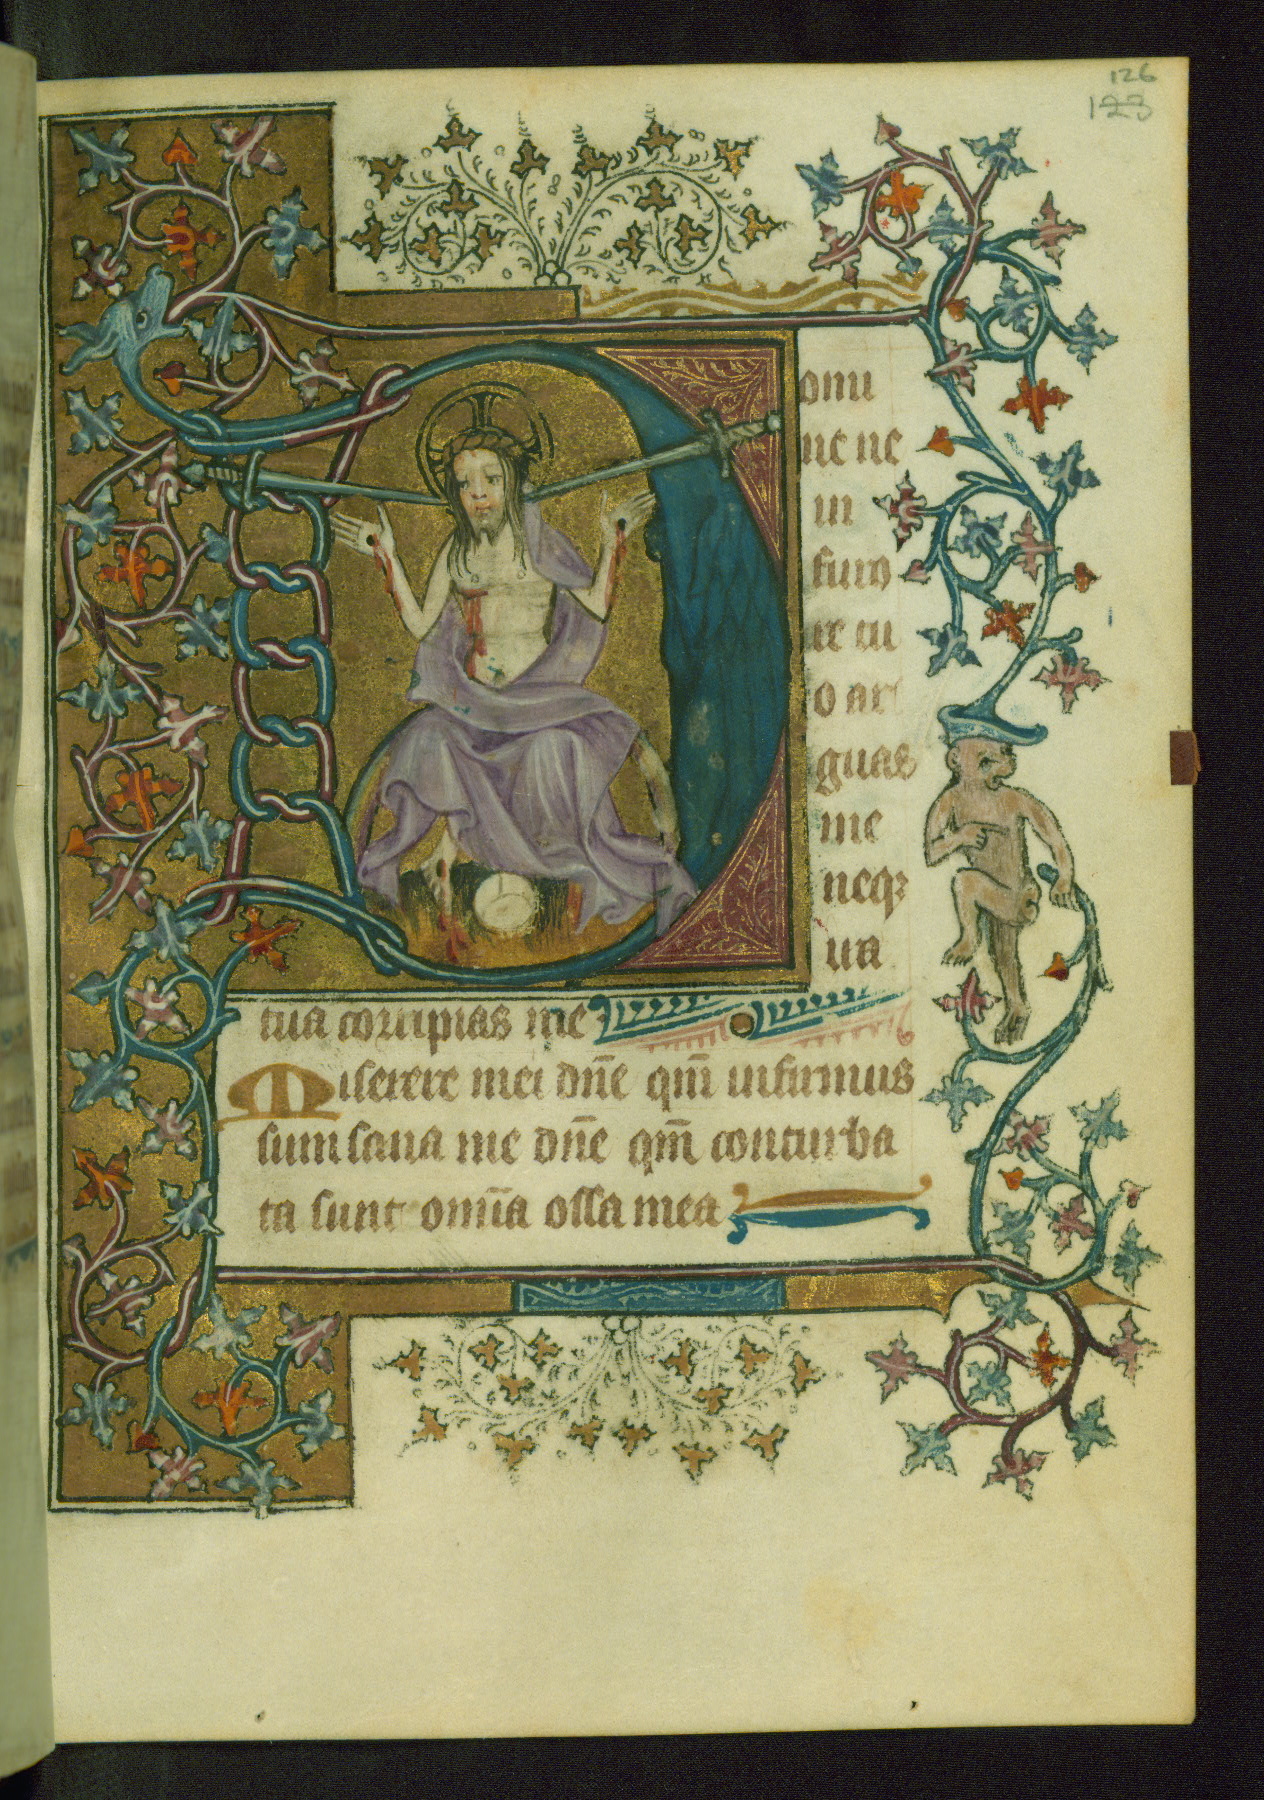 126
123
Donu
ne ne
in
furo
re tu
o ar
guas
me
neqꝫ
ua
tua corripias me
Miserere mei dñe qm̄ infirmus
sum sana me dñe qm̄ conturba
ta sunt om̄ia ossa mea